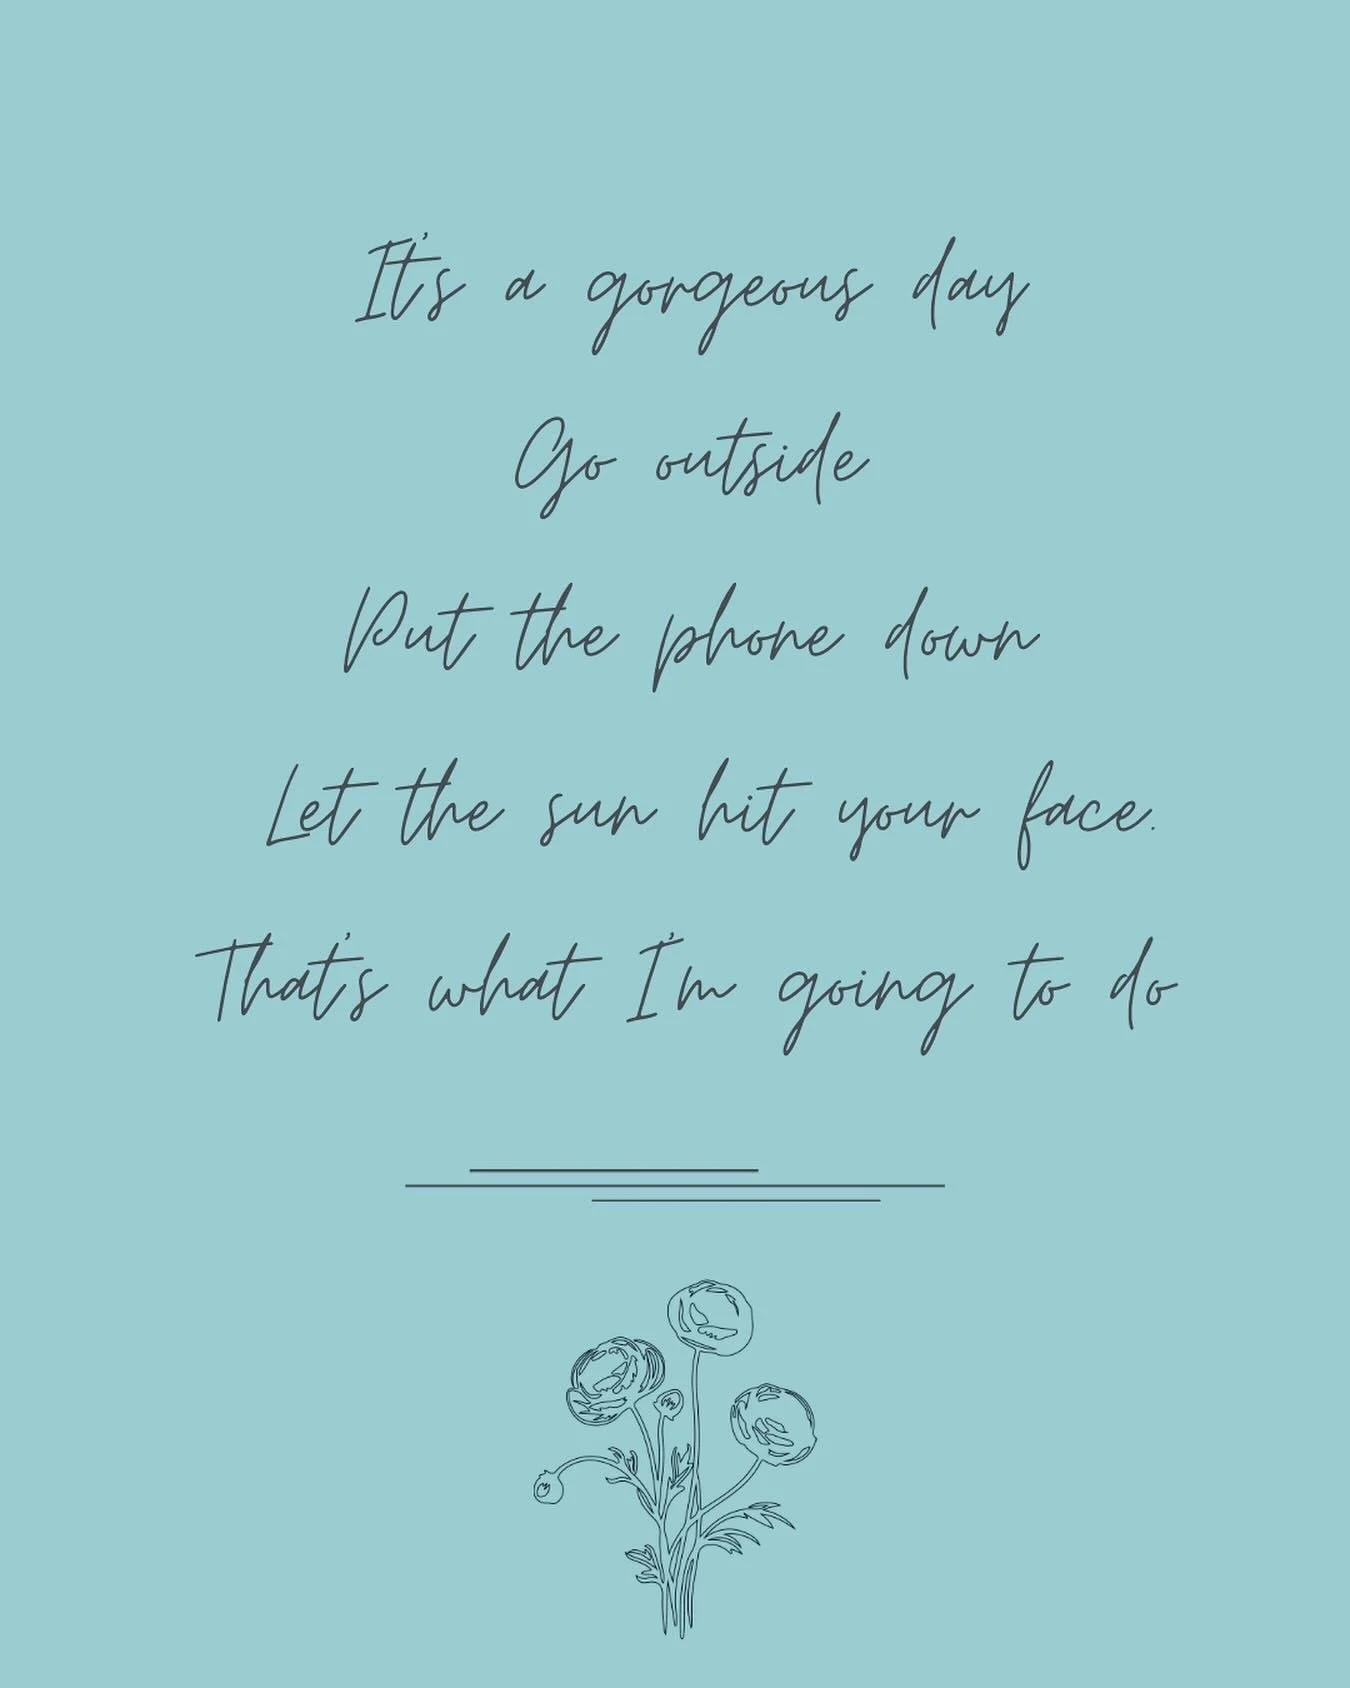 It's a gorgeous day
Go outside
Put the phone down
Let the sun hit your face.
That's what I'm going to do